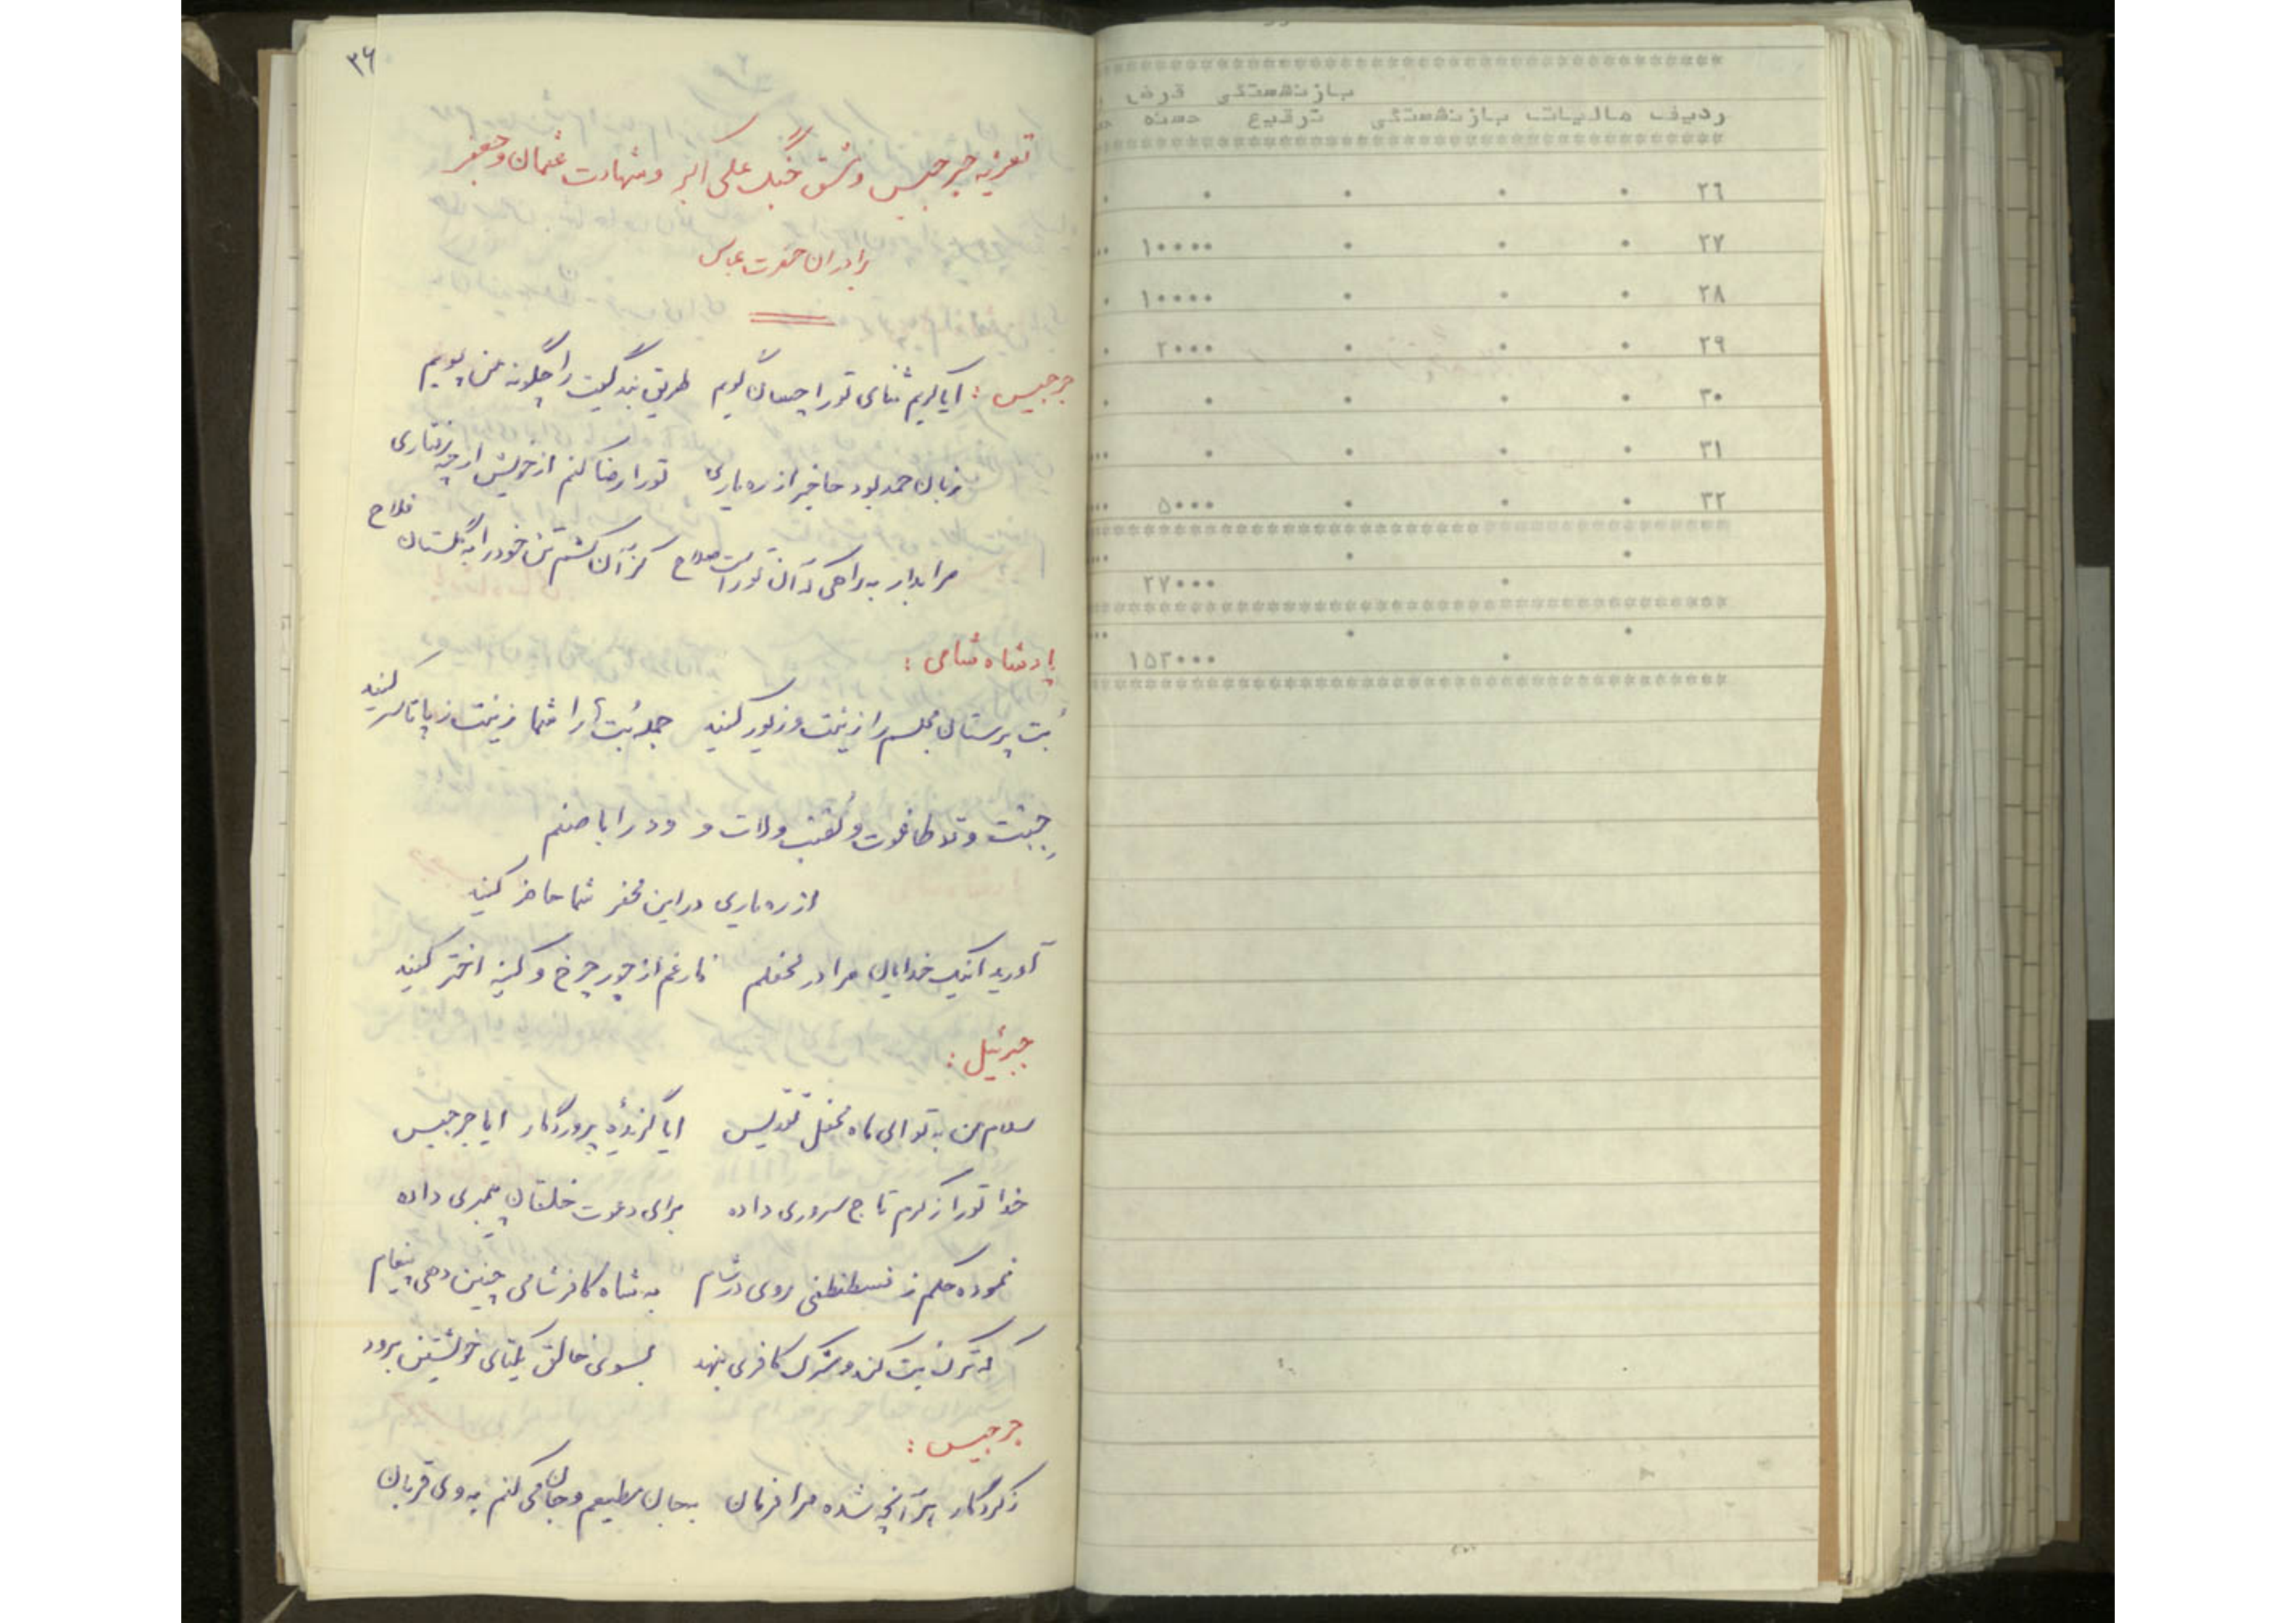 ۳۶
تعزیه جرجیس و مشق جنگ علی اکبر و شهادت عثمان و جعفر
برادران حضرت عباس
جرجیس : آیا کریم ثنای تو را چسان گویم طریق بندگیت را چگونه من پویم
زبان حمد بود عاجز از ره یاری تو را رضا کنم از خویش از چه رفتاری
مرا بدار به راهی که آن تو راست صلاح کز آن کشم تن خود را به گلستان فلاح
پادشاه شامی :
بُت پرستان مجلسم را زینت و زیور کنید جمله بُت‌ها را شما زینت ز پا تا سر کنید
جبت و طاغوت و ولات و ود را با صنم
از ره یاری در این محضر شما حاضر کنید
آورید اینک خدایان مرا در محفلم فارغم از جور چرخ و کینه اختر کنید
جبرئیل :
سلام من به تو ای ماه محفل تقدیس ایا گزیدهٔ پروردگار ایا جرجیس
خدا تو را ز کرم تاج سروری داده برای دعوت خلقان پیمبری داده
نموده حکم ز قسطنطنی روی در شام به شاه کافر شامی چنین دهی پیغام
که ترک بت کند و شرک کافری بنهد بسوی خالق یکتای خویشتن برود
جرجیس :
ز کردگار هر آنچه شده مرا فرمان بجان مطیعم و جان می کنم به وی قربان
بازنشستگی قرض
ردیف مالیات بازنشستگی ترفیع حسنه
۲۶ ۰ ۰ ۰ ۰ ۰
۲۷ ۰ ۰ ۰ ۱۰۰۰۰
۲۸ ۰ ۰ ۰ ۱۰۰۰۰ ۰
۲۹ ۰ ۰ ۰ ۲۰۰۰ ۰
۳۰ ۰ ۰ ۰ ۰ ۰
۳۱ ۰ ۰ ۰ ۰
۳۲ ۰ ۰ ۰ ۵۰۰۰
۰ ۰
۰ ۲۷۰۰۰
۰ ۰
۰ ۱۵۲۰۰۰